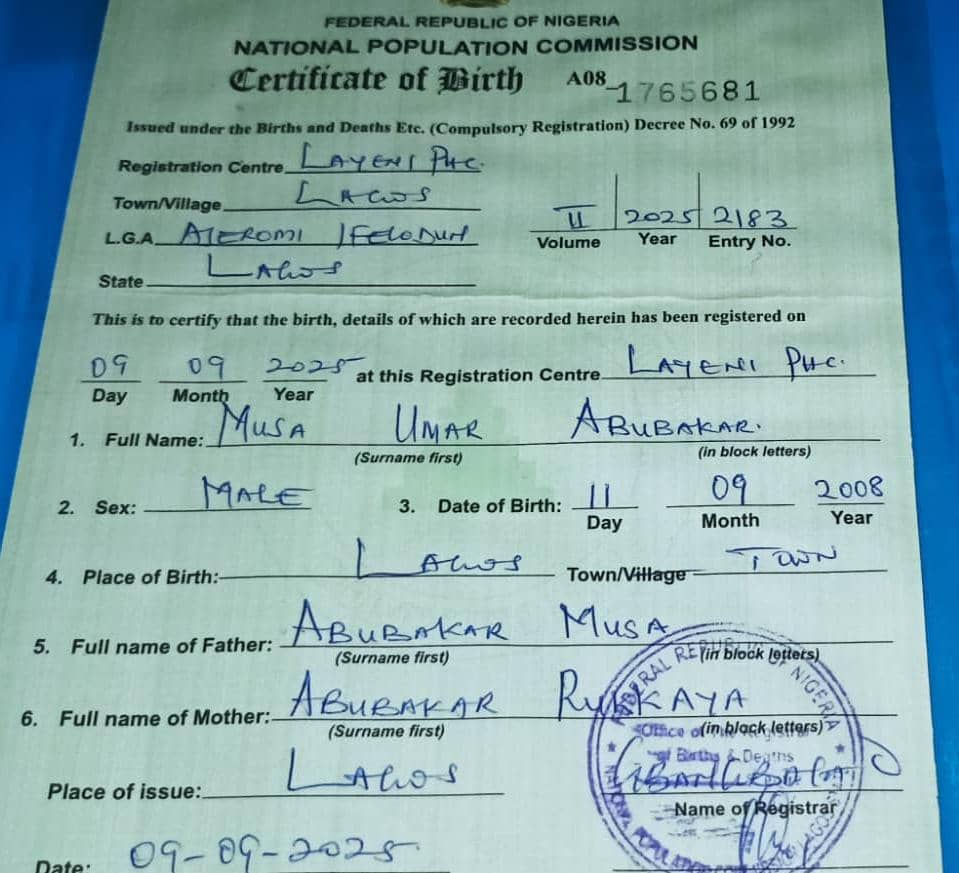 FEDERAL REPUBLIC OF NIGERIA
NATIONAL POPULATION COMMISSION
Certificate of Birth A08 1765681
Issued under the Births and Deaths Etc. (Compulsory Registration) Decree No. 69 of 1992
Registration Centre LAYENI PHC.
Town/Village LAGOS
L.G.A AJEROMI IFELODUN
II 2025 2183
Volume Year Entry No.
State LAGOS
This is to certify that the birth, details of which are recorded herein has been registered on
09 09 2025 at this Registration Centre LAYENI PHC.
Day Month Year
1. Full Name: MUSA UMAR ABUBAKAR.
(Surname first) (in block letters)
2. Sex: MALE 3. Date of Birth: 11 09 2008
Day Month Year
4. Place of Birth:- LAGOS Town/Village TOWN
5. Full name of Father: ABUBAKAR MUSA
(Surname first) (in block letters)
6. Full name of Mother:- ABUBAKAR RUKKAYA
(Surname first) (in block letters)
FEDERAL REPUBLIC OF NIGERIA
Office of
of Births & Deaths
Place of issue: LAGOS
Name of Registrar
Date: 09-09-2025